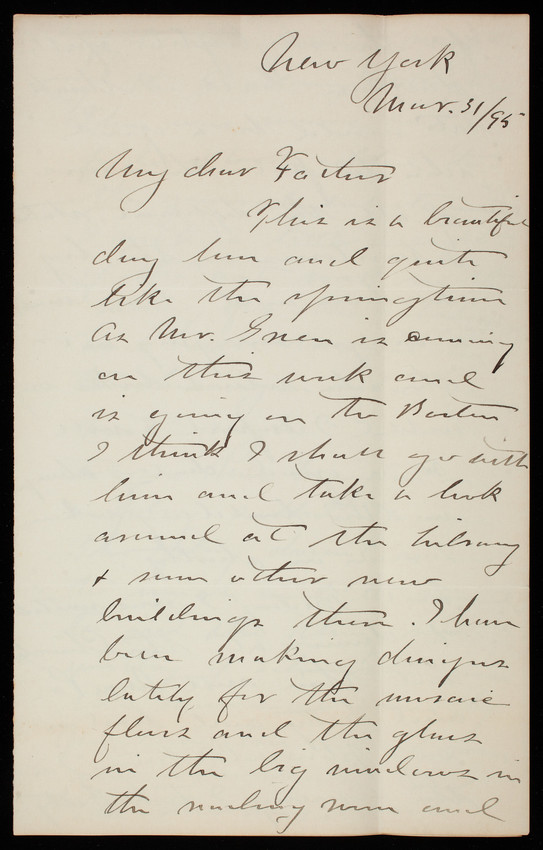 New York
Mar. 31/95
My dear Father
This is a beautiful
day here and quite
like the springtime
As Mr. Green is coming
on this week and
is going on to Boston
I think I shall go with
him and take a look
around at the library
& some other new
buildings there. I have
been making designs
lately for the mosaic
floors and the glass
in the big windows in
the reading room and